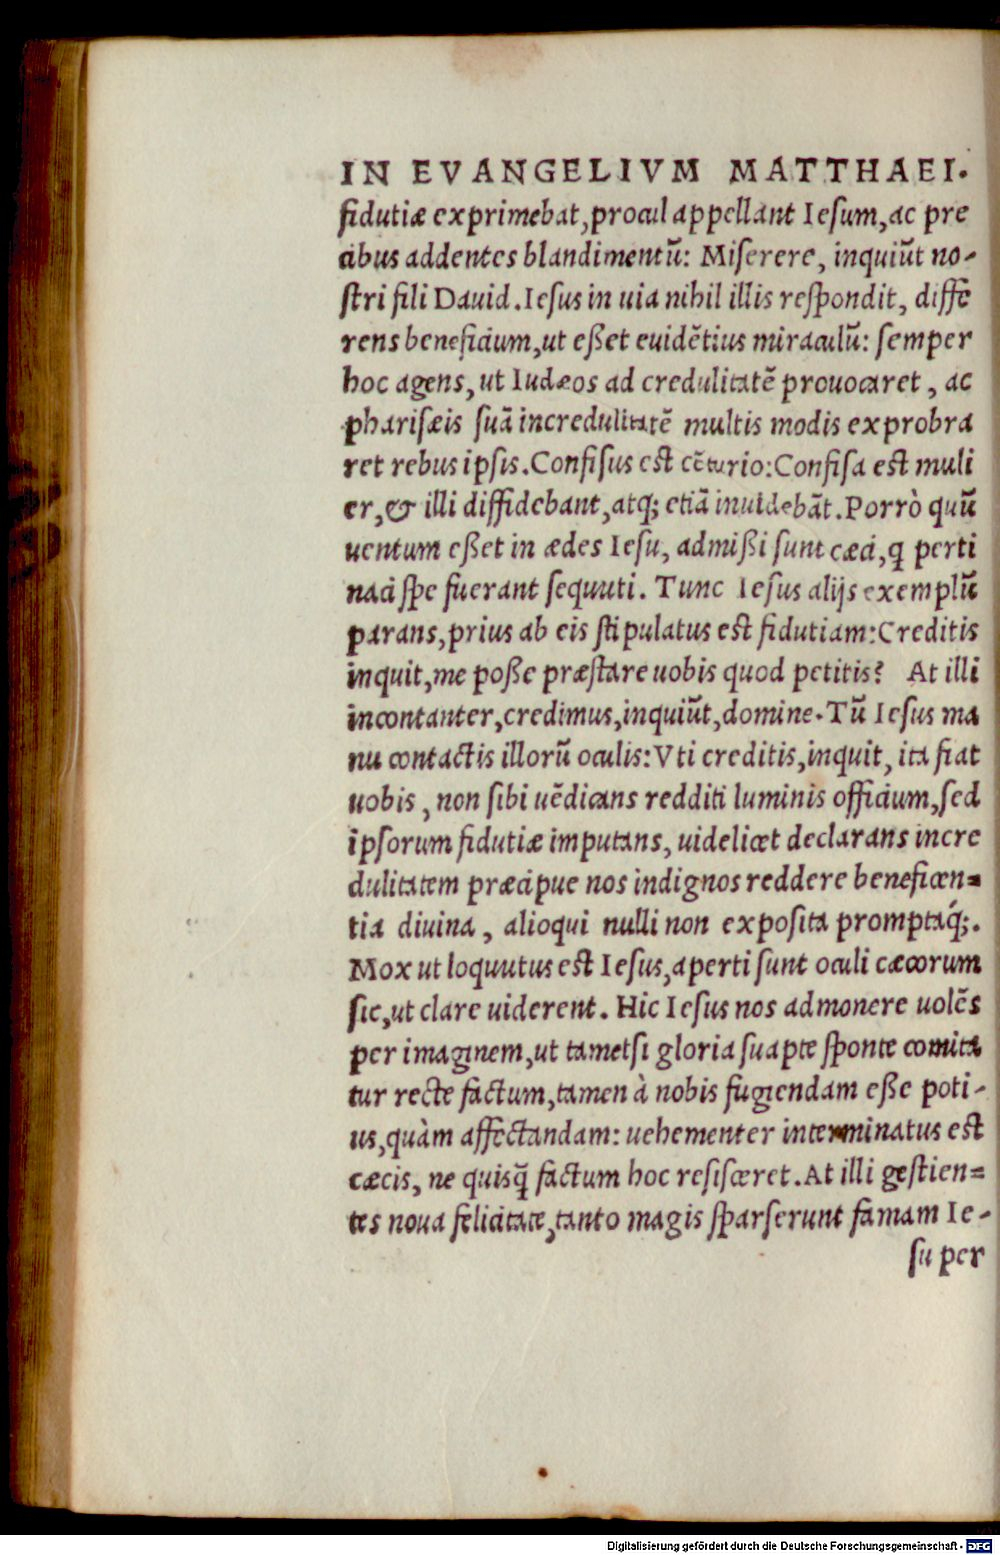 IN EVANGELIVM MATTHAEI.
fidutiæ exprimebat, procul appellant Iesum, ac pre
cibus addentes blandimentũ: Miserere, inquiũt no-
stri fili Dauid. Iesus in uia nihil illis respondit, diffe
rens beneficium, ut eßet euidẽtius miraculũ: semper
hoc agens, ut Iudæos ad credulitatẽ prouocaret, ac
pharisæis suã incredulitatẽ multis modis exprobra
ret rebus ipsis. Confisus est cẽturio: Confisa est muli
er, & illi diffidebant, atq; etiã inuidebãt. Porrò quũ
uentum eßet in ædes Iesu, admißi sunt cæci, q perti
naci spe fuerant sequuti. Tunc Iesus alijs exemplũ
parans, prius ab eis stipulatus est fidutiam: Creditis
inquit, me poße præstare uobis quod petitis? At illi
incontanter, credimus, inquiũt, domine. Tũ Iesus ma
nu contactis illorũ oculis: Vti creditis, inquit, ita fiat
uobis, non sibi uẽdicans redditi luminis officium, sed
ipsorum fidutiæ imputans, uidelicet declarans incre
dulitatem præcipue nos indignos reddere beneficen-
tia diuina, alioqui nulli non exposita promptaq́;.
Mox ut loquutus est Iesus, aperti sunt oculi cæcorum
sic, ut clare uiderent. Hic Iesus nos admonere uolẽs
per imaginem, ut tametsi gloria suapte sponte comita
tur recte factum, tamen à nobis fugiendam eße poti-
us, quàm affectandam: uehementer interminatus est
cæcis, ne quisq̃ factum hoc resisceret. At illi gestien-
tes noua felicitate, tanto magis sparserunt famam Ie-
su per
Digitalisierung gefördert durch die Deutsche Forschungsgemeinschaft - DFG